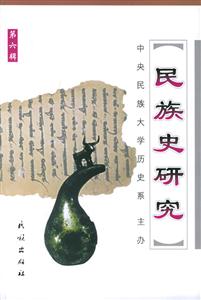 【民族史研究】
中央民族大学历史系 主办
第六辑
民族出版社